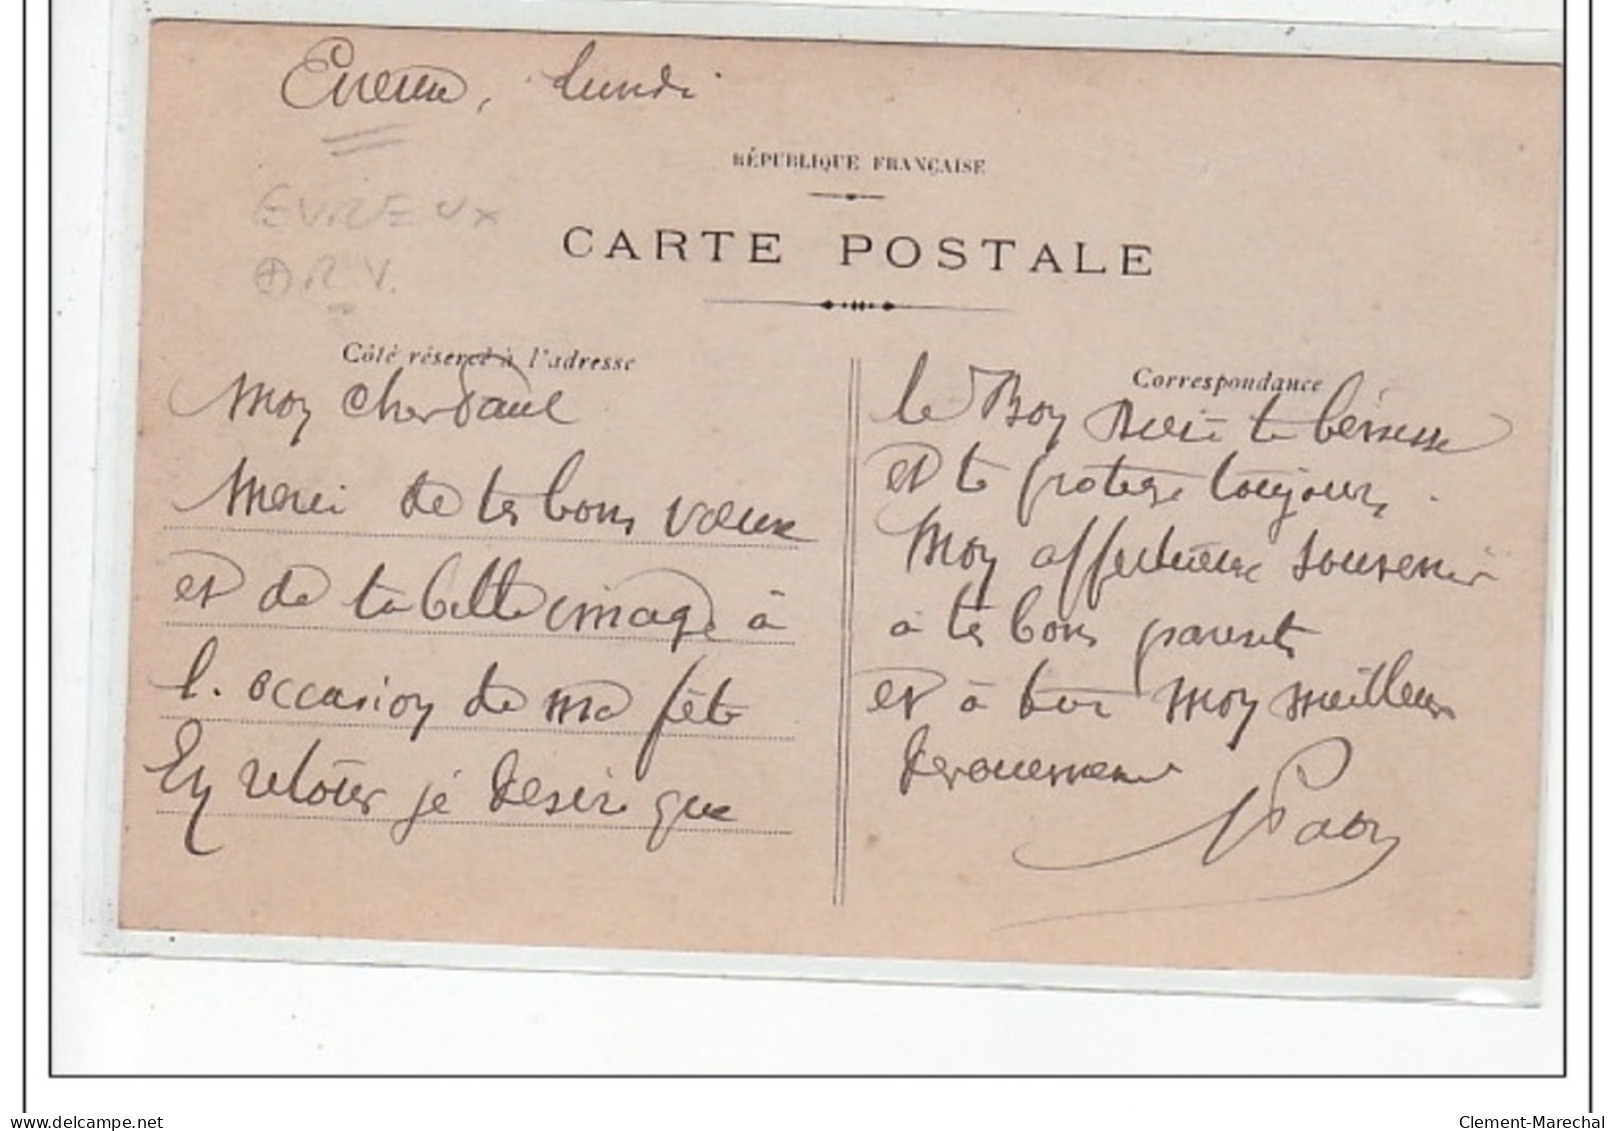 Evreux, lundi
RÉPUBLIQUE FRANÇAISE
EVREUX
CARTE POSTALE
Côté réservé à l'adresse
Mon cher Paul
Merci de tes bons vœux
et de ta belle image à
l'occasion de ma fête
En retour je désire que
Correspondance
le Bon Dieu te bénisse
et te protège toujours.
Mon affectueux souvenir
à tes bons parents
et à toi mon meilleur
dévouement
delcampe.net
Clement-Marechal